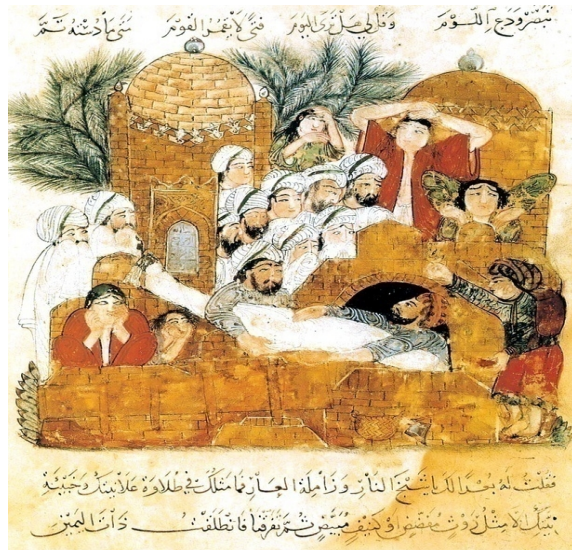 تبصر ودع اللوم وقل لي هل ترى اليوم فتى لا يقمر القوم متى ما دسته تم
فقلت له بعدا لك يا شيخ النار وزاملة العار فما مثلك في طلاوة علانيتك وخبيثة
نيتك الا مثل روث مفضض او كنيف مبيض ثم تفرقنا فانطلقت ذات اليمين